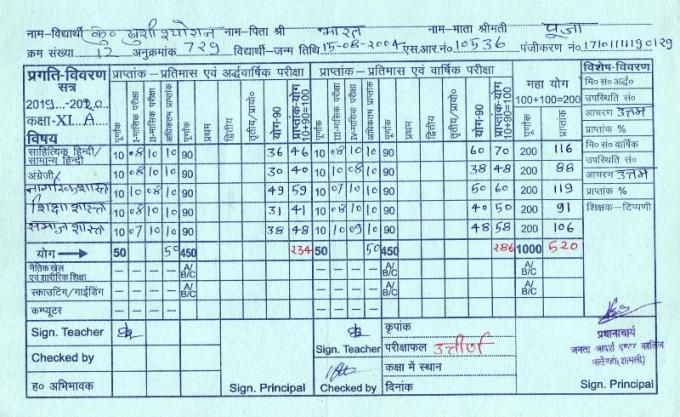 नाम-विद्यार्थी कु० खुशी नाम-पिता श्री भारत नाम-माता श्रीमती पूजा
क्रम संख्या 12 अनुक्रमांक 729 विद्यार्थी-जन्म तिथि 15-08-2004 एस.आर.नं० 10536 पंजीकरण नं० 1710111190129
प्रगति-विवरण प्राप्तांक-प्रतिमास एवं अर्द्धवार्षिक परीक्षा प्राप्तांक-प्रतिमास एवं वार्षिक परीक्षा महा योग विशेष-विवरण
सत्र 100+100=200 मि० सं० अर्द्ध०
2019...-2020... उपस्थिति सं०
कक्षा-XI. A आचरण उत्तम
विषय पूर्णांक I-मासिक परीक्षा II-मासिक परीक्षा अधिकतम प्राप्तांक पूर्णांक प्रथम द्वितीय तृतीय/प्रयो० योग-90 प्राप्तांक-योग 10+90=100 पूर्णांक III-मासिक परीक्षा IV-मासिक परीक्षा अधिकतम प्राप्तांक पूर्णांक प्रथम द्वितीय तृतीय/प्रयो० योग-90 प्राप्तांक-योग 10+90=100 पूर्णांक प्राप्तांक प्राप्तांक %
साहित्यिक हिन्दी/ सामान्य हिन्दी 10 08 10 10 90 36 46 10 08 10 10 90 60 70 200 116 मि० सं० वार्षिक
उपस्थिति सं०
अंग्रेजी 10 08 10 10 90 30 40 10 10 08 10 90 38 48 200 88 आचरण उत्तम
नागरिक शास्त्र 10 10 08 10 90 49 59 10 07 10 10 90 50 60 200 119 प्राप्तांक %
शिक्षा शास्त्र 10 08 10 10 90 31 41 10 08 10 10 90 40 50 200 91 शिक्षक-टिप्पणी
समाज शास्त्र 10 07 10 10 90 38 48 10 10 09 10 90 48 58 200 106
योग 50 50 450 234 50 50 450 286 1000 520
नैतिक खेल एवं शारीरिक शिक्षा – – – – A/B/C – – – – A/B/C – – A/B/C
स्काउटिंग/गाईडिंग – – – – A/B/C – – – – A/B/C – – A/B/C
कम्प्यूटर – – – – – – – – – –
Sign. Teacher कृपांक
Sign. Teacher परीक्षाफल उत्तीर्ण प्रधानाचार्य
Checked by कक्षा में स्थान जनता आदर्श इण्टर कालिज
(शामली)
ह० अभिभावक Sign. Principal Checked by दिनांक Sign. Principal